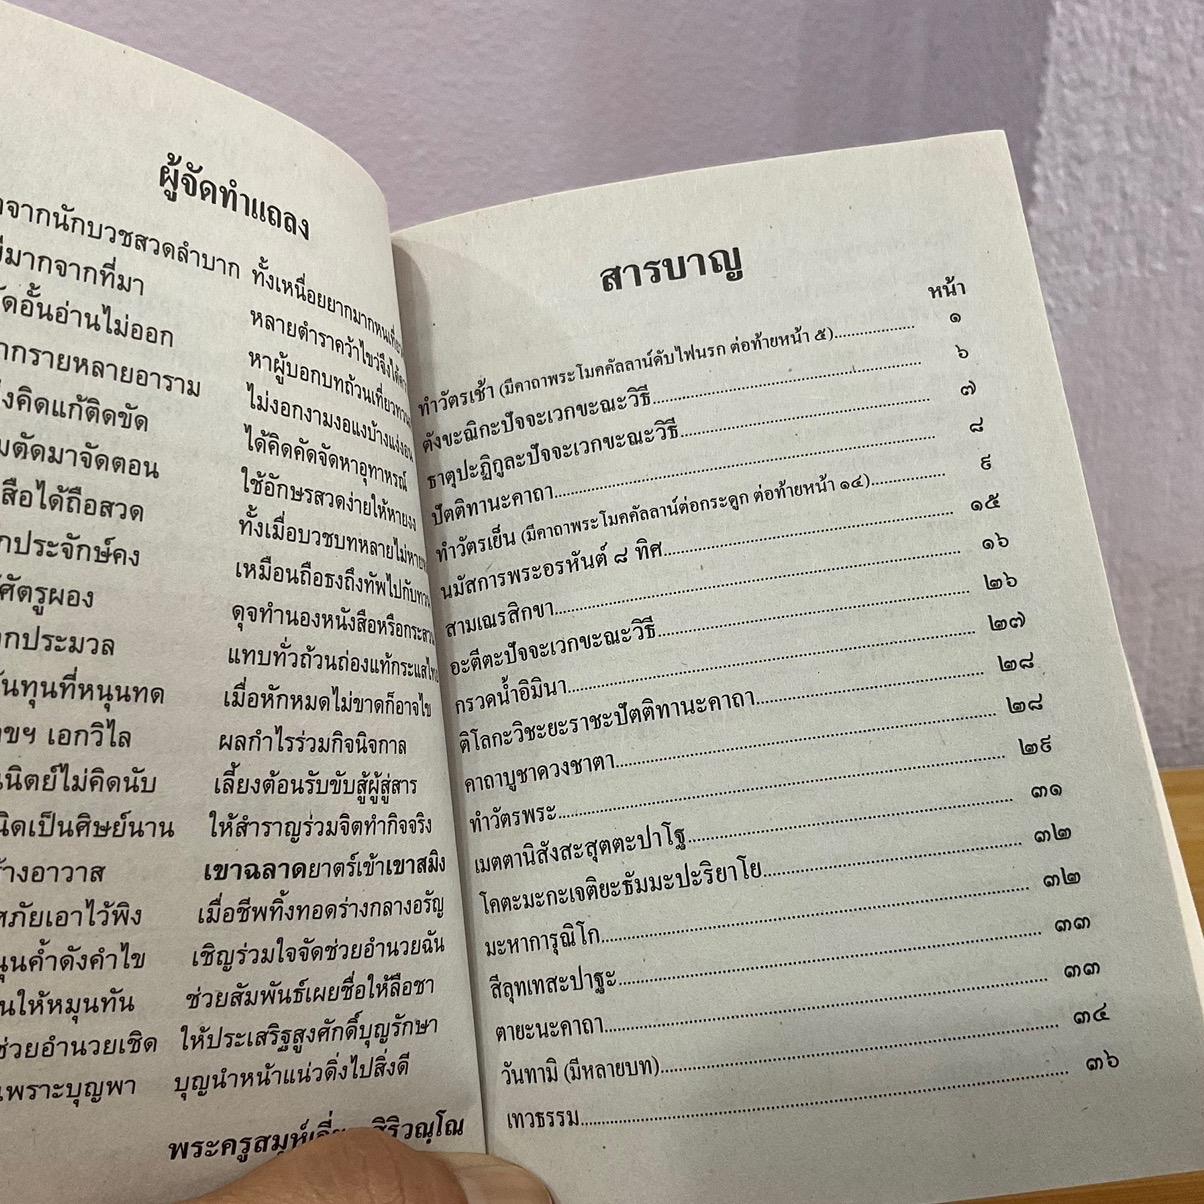 ผู้จัดทำแถลง
จากนักบวชสวดลำบาก ทั้งเหนื่อยยากมากหน
มีมากจากที่มา หลายตำราคว้าไขว่จึงได้
อั้นอ่านไม่ออก หาผู้บอกบทถ้วนเที่ยว
หลายอาราม ไม่งอกงามงอแงบ้างแง่งอน
คิดแก้ติดขัด ได้คิดคัดจัดหาอุทาหรณ์
ตัดมาจัดตอน ใช้อักษรสวดง่ายให้หายงง
สือได้ถือสวด ทั้งเมื่อบวชบทหลายไม่หาย
ประจักษ์คง เหมือนถือธงถึงทัพไปกับ
ศัตรูผอง ดุจทำนองหนังสือหรือ
ประมวล แทบทั่วถ้วนถ่องแท้กระแส
ทุนที่หนุนทด เมื่อหักหมดไม่ขาดก็อาจไข
ขฯ เอกวิไล ผลกำไรร่วมกิจนิจกาล
นิตย์ไม่คิดนับ เลี้ยงต้อนรับขับสู้ผู้สู่สาร
เป็นศิษย์นาน ให้สำราญร่วมจิตทำกิจจริง
อาวาส เขาฉลาดยาตร์เข้าเขาสมิง
ภัยเอาไว้พิง เมื่อชีพทิ้งทอดร่างกลางอรัญ
ค้ำดังคำไข เชิญร่วมใจจัดช่วยอำนวยฉัน
ให้หมุนทัน ช่วยสัมพันธ์เผยชื่อให้ลือชา
ช่วยอำนวยเชิด ให้ประเสริฐสูงศักดิ์บุญรักษา
เพราะบุญพา บุญนำหน้าแน่วดิ่งไปสิ่งดี
พระครูสมุห์ สิริวณฺโณ
สารบาญ
หน้า
ทำวัตรเช้า (มีคาถาพระโมคคัลลาน์ดับไฟนรก ต่อท้ายหน้า ๕)................. ๑
ตังขะณิกะปัจจะเวกขะณะวิธี................. ๖
ธาตุปะฏิกูละปัจจะเวกขะณะวิธี................. ๗
ปัตติทานะคาถา................. ๘
ทำวัตรเย็น (มีคาถาพระโมคคัลลาน์ต่อกระดูก ต่อท้ายหน้า ๑๔)................. ๙
นมัสการพระอรหันต์ ๘ ทิศ................. ๑๕
สามเณรสิกขา................. ๑๖
อะตีตะปัจจะเวกขะณะวิธี................. ๒๖
กรวดน้ำอิมินา................. ๒๗
ติโลกะวิชะยะราชะปัตติทานะคาถา................. ๒๘
คาถาบูชาดวงชาตา................. ๒๘
ทำวัตรพระ................. ๒๙
เมตตานิสังสะสุตตะปาโฐ................. ๓๑
โคตะมะกะเจติยะธัมมะปะริยาโย................. ๓๒
มะหาการุณิโก................. ๓๒
สีลุทเทสะปาฐะ................. ๓๓
ตายะนะคาถา................. ๓๓
วันทามิ (มีหลายบท)................. ๓๔
เทวธรรม................. ๓๖